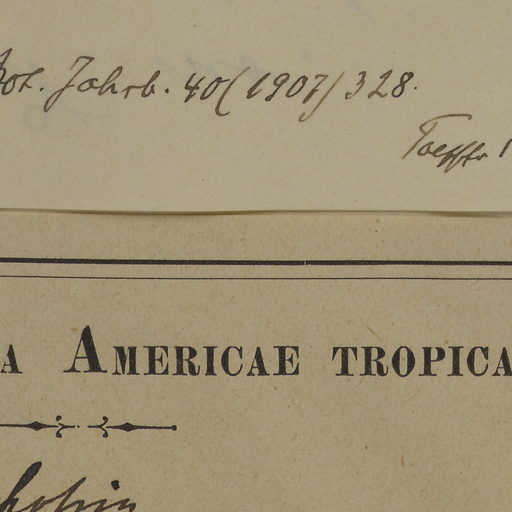 Bot. Jahrb. 40 (1907) 328.
A AMERICAE TROPICA